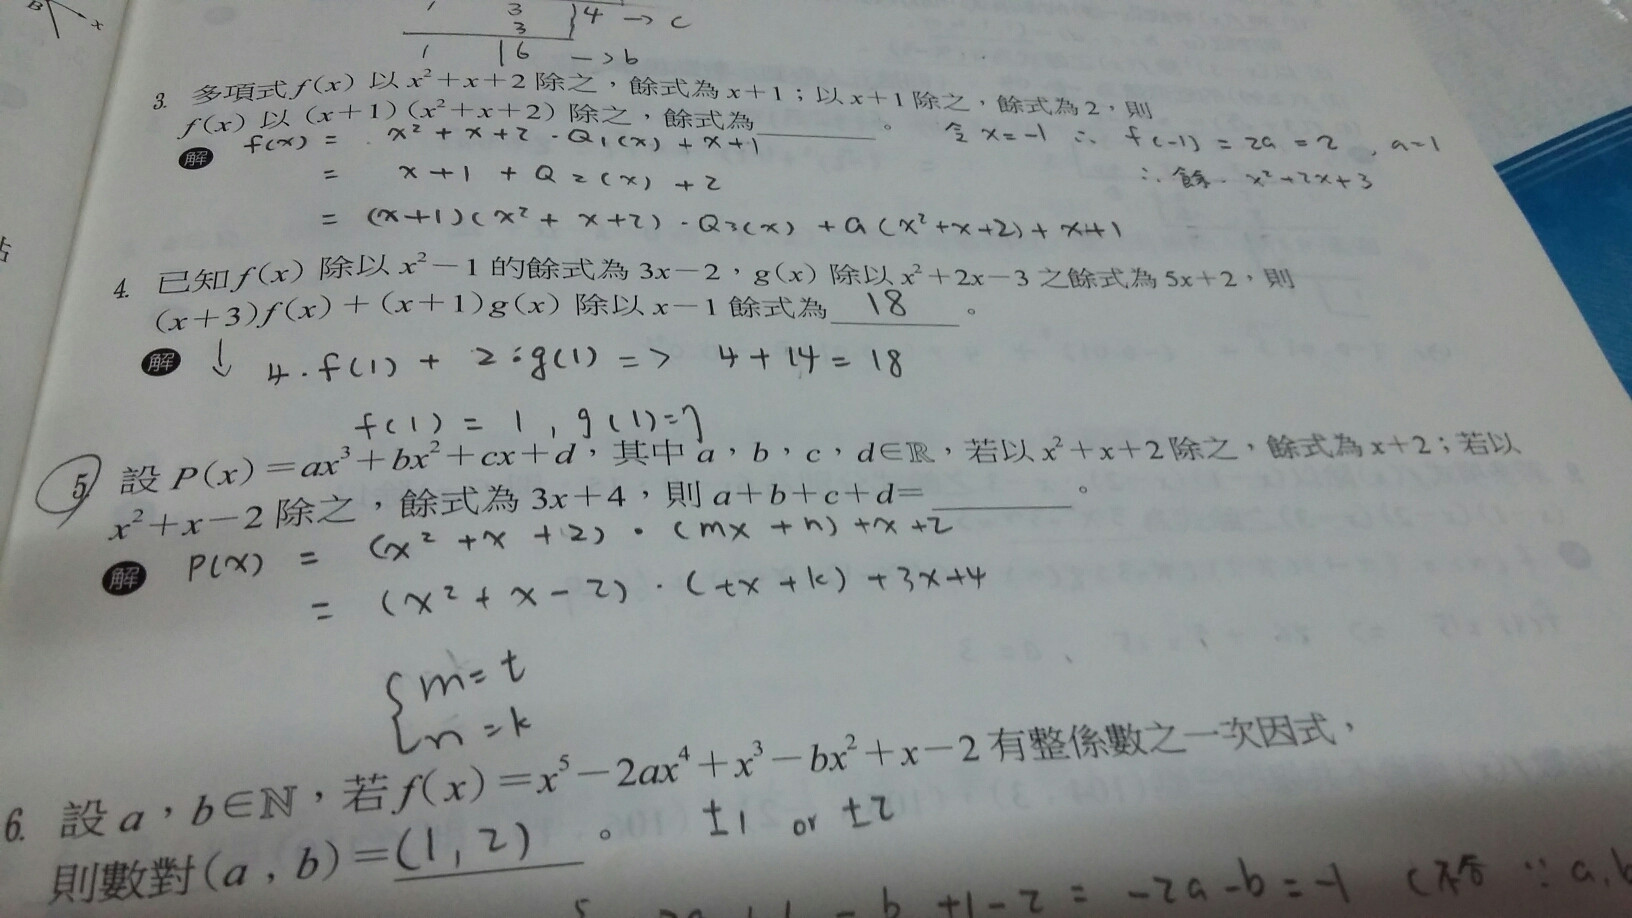 B
x
1 3 4 → c
3
1 16 → b
3. 多項式 f(x) 以 x²+x+2 除之，餘式為 x+1；以 x+1 除之，餘式為 2，則
f(x) 以 (x+1)(x²+x+2) 除之，餘式為______。 令 x=-1 ∴ f(-1) = 2a = 2 , a=1
解 f(x) = x² + x + 2 · Q₁(x) + x+1
= x+1 + Q₂(x) + 2 ∴ 餘 x²+2x+3
= (x+1)(x² + x+2) · Q₃(x) + a(x²+x+2) + x+1
4. 已知 f(x) 除以 x²−1 的餘式為 3x−2，g(x) 除以 x²+2x−3 之餘式為 5x+2，則
(x+3)f(x)+(x+1)g(x) 除以 x−1 餘式為 18 。
解 ↓ 4·f(1) + 2·g(1) => 4+14 = 18
f(1) = 1 , g(1)=7
5. 設 P(x)=ax³+bx²+cx+d，其中 a，b，c，d∈ℝ，若以 x²+x+2 除之，餘式為 x+2；若以
x²+x−2 除之，餘式為 3x+4，則 a+b+c+d=______。
解 P(x) = (x² + x + 2) · (mx + n) + x + 2
= (x² + x − 2) · (tx + k) + 3x+4
{ m = t
n = k
6. 設 a，b∈ℕ，若 f(x)=x⁵−2ax⁴+x³−bx²+x−2 有整係數之一次因式，
則數對(a , b)=(1, 2) 。 ±1 or ±2
− b +1−2 = −2a−b = −1 (不合 ∵ a, b